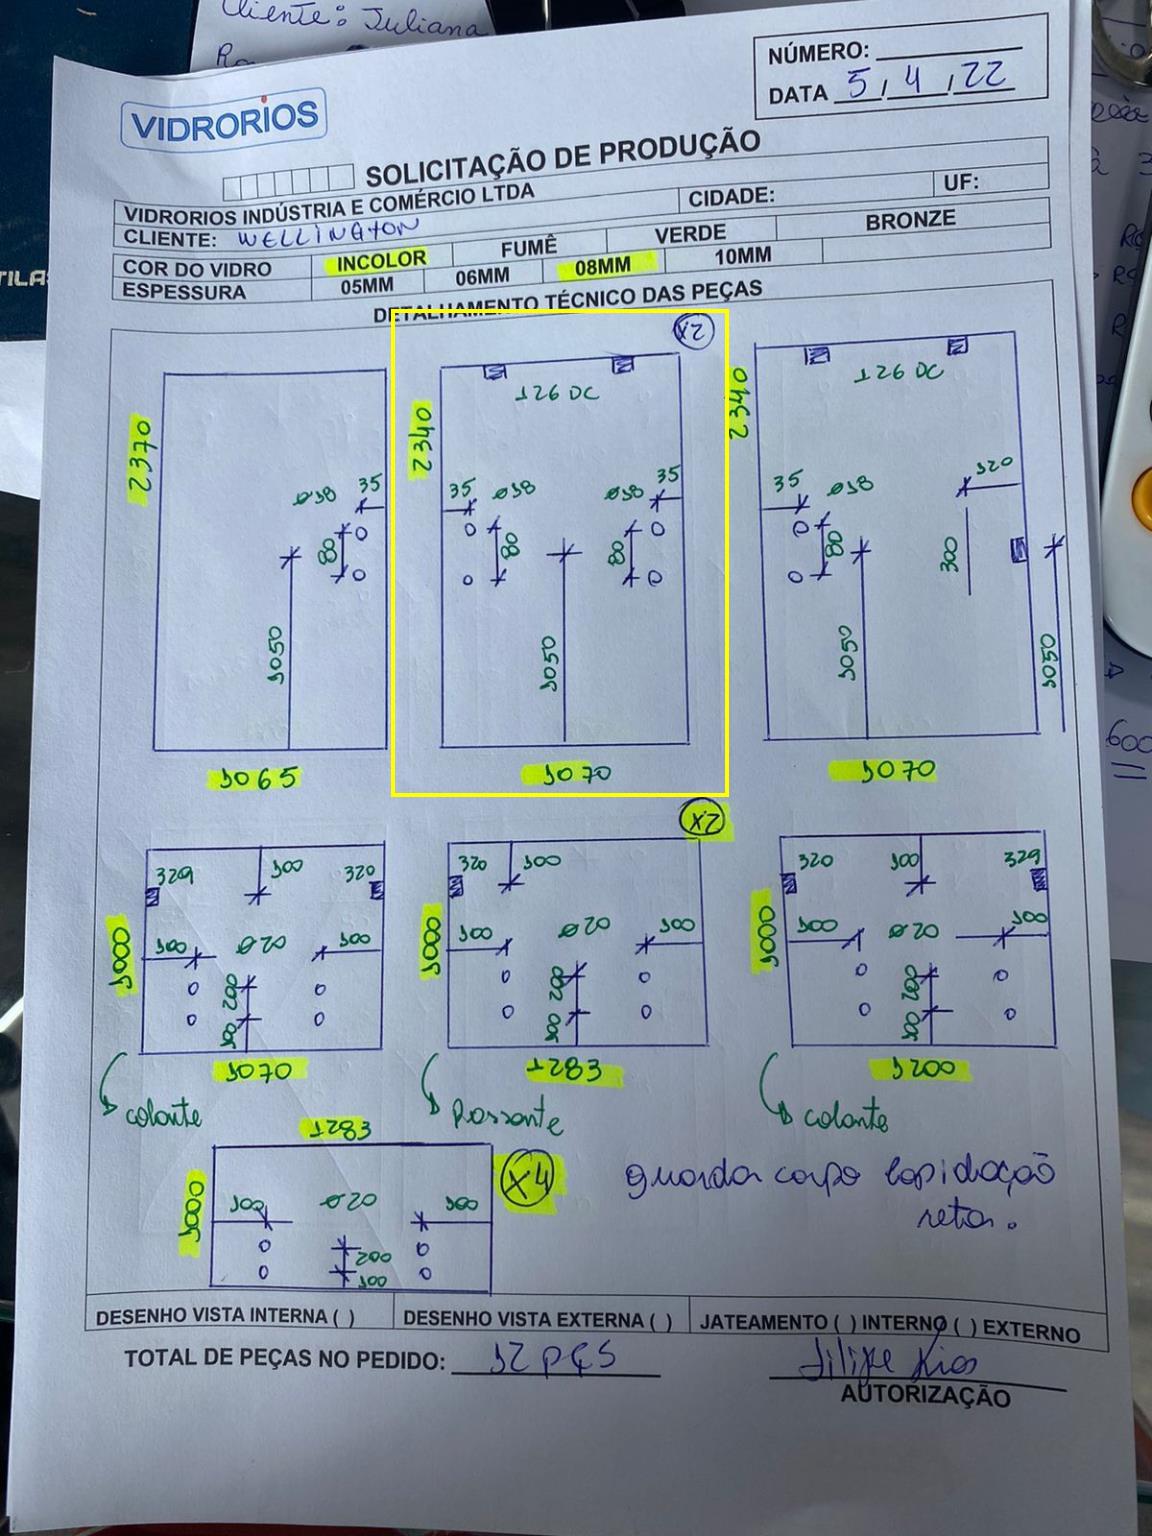 Cliente: Juliana
NÚMERO:
DATA 5, 4, 22
VIDRORIOS
SOLICITAÇÃO DE PRODUÇÃO
VIDRORIOS INDÚSTRIA E COMÉRCIO LTDA CIDADE: UF:
CLIENTE: WELLINGTON
COR DO VIDRO INCOLOR FUMÊ VERDE BRONZE
ESPESSURA 05MM 06MM 08MM 10MM
DETALHAMENTO TÉCNICO DAS PEÇAS
2370
ø18
35
80
1050
1065
X2
2340
126 DC
35 ø18
ø18 35
80
80
1050
1070
2340
126 DC
35 ø18
120
80
300
1050
1050
1070
329 100 320
1000
100 ø20 100
200
100
1070
colante
X2
320 100
1000
100 ø20 100
200
100
1283
Passante
320 100 329
1000
100 ø20 100
200
100
1200
colante
1283
1000
100 ø20 100
200
100
X4
guarda corpo lapidação
reta.
DESENHO VISTA INTERNA ( ) DESENHO VISTA EXTERNA ( ) JATEAMENTO ( ) INTERNO ( ) EXTERNO
TOTAL DE PEÇAS NO PEDIDO: 12 PÇS
Filipe Rios
AUTORIZAÇÃO
600